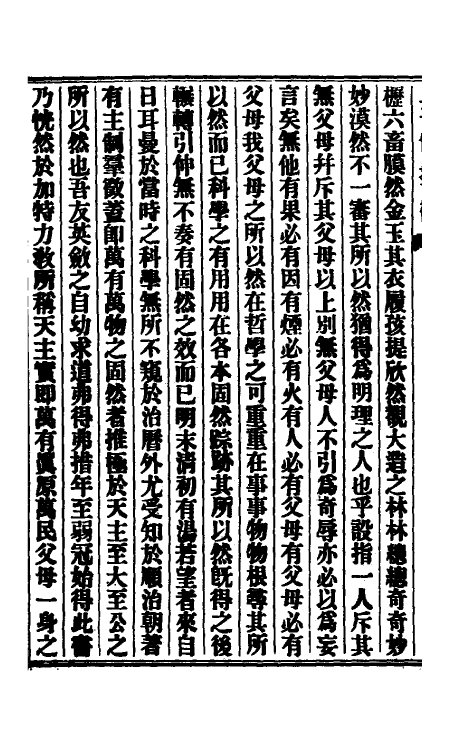 櫪六畜膜然金玉其衣履孩提欣然觀大造之林林總總奇奇妙
妙漠然不一審其所以然猶得爲明理之人也乎設指一人斥其
無父母幷斥其父母以上別無父母人不引爲奇辱亦必以爲妄
言矣無他有果必有因有煙必有火有人必有父母有父母必有
父母我父母之所以然在哲學之可重重在事事物物根尋其所
以然而已科學之有用用在各本固然踪跡其所以然旣得之後
輾轉引伸無不奏有固然之效而已明末淸初有湯若望者來自
日耳曼於當時之科學無所不窺於治曆外尤受知於順治朝著
有主制羣徵蓋卽萬有萬物之固然者推極於天主至大至公之
所以然也吾友英斂之自幼求道弗得弗措年至弱冠始得此書
乃恍然於加特力敎所稱天主實卽萬有眞原萬民父母一身之